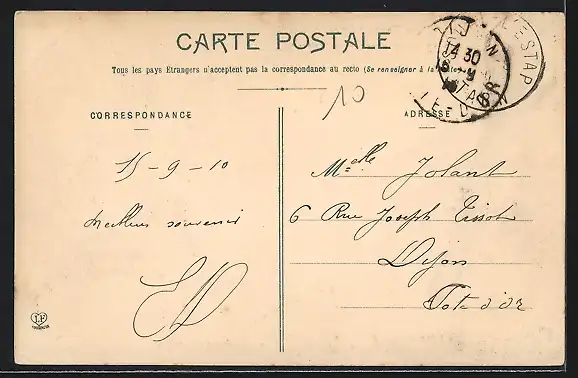 CARTE POSTALE
Tous les pays Etrangers n'acceptent pas la correspondance au recto (Se renseigner à la
10
CORRESPONDANCE
ADRESSE
15-9-10
Meilleur souvenir
ED
Melle Jolant
6 Rue Joseph Tissot
Dijon
Cote d'or
L'ESTAP
14 30
LF